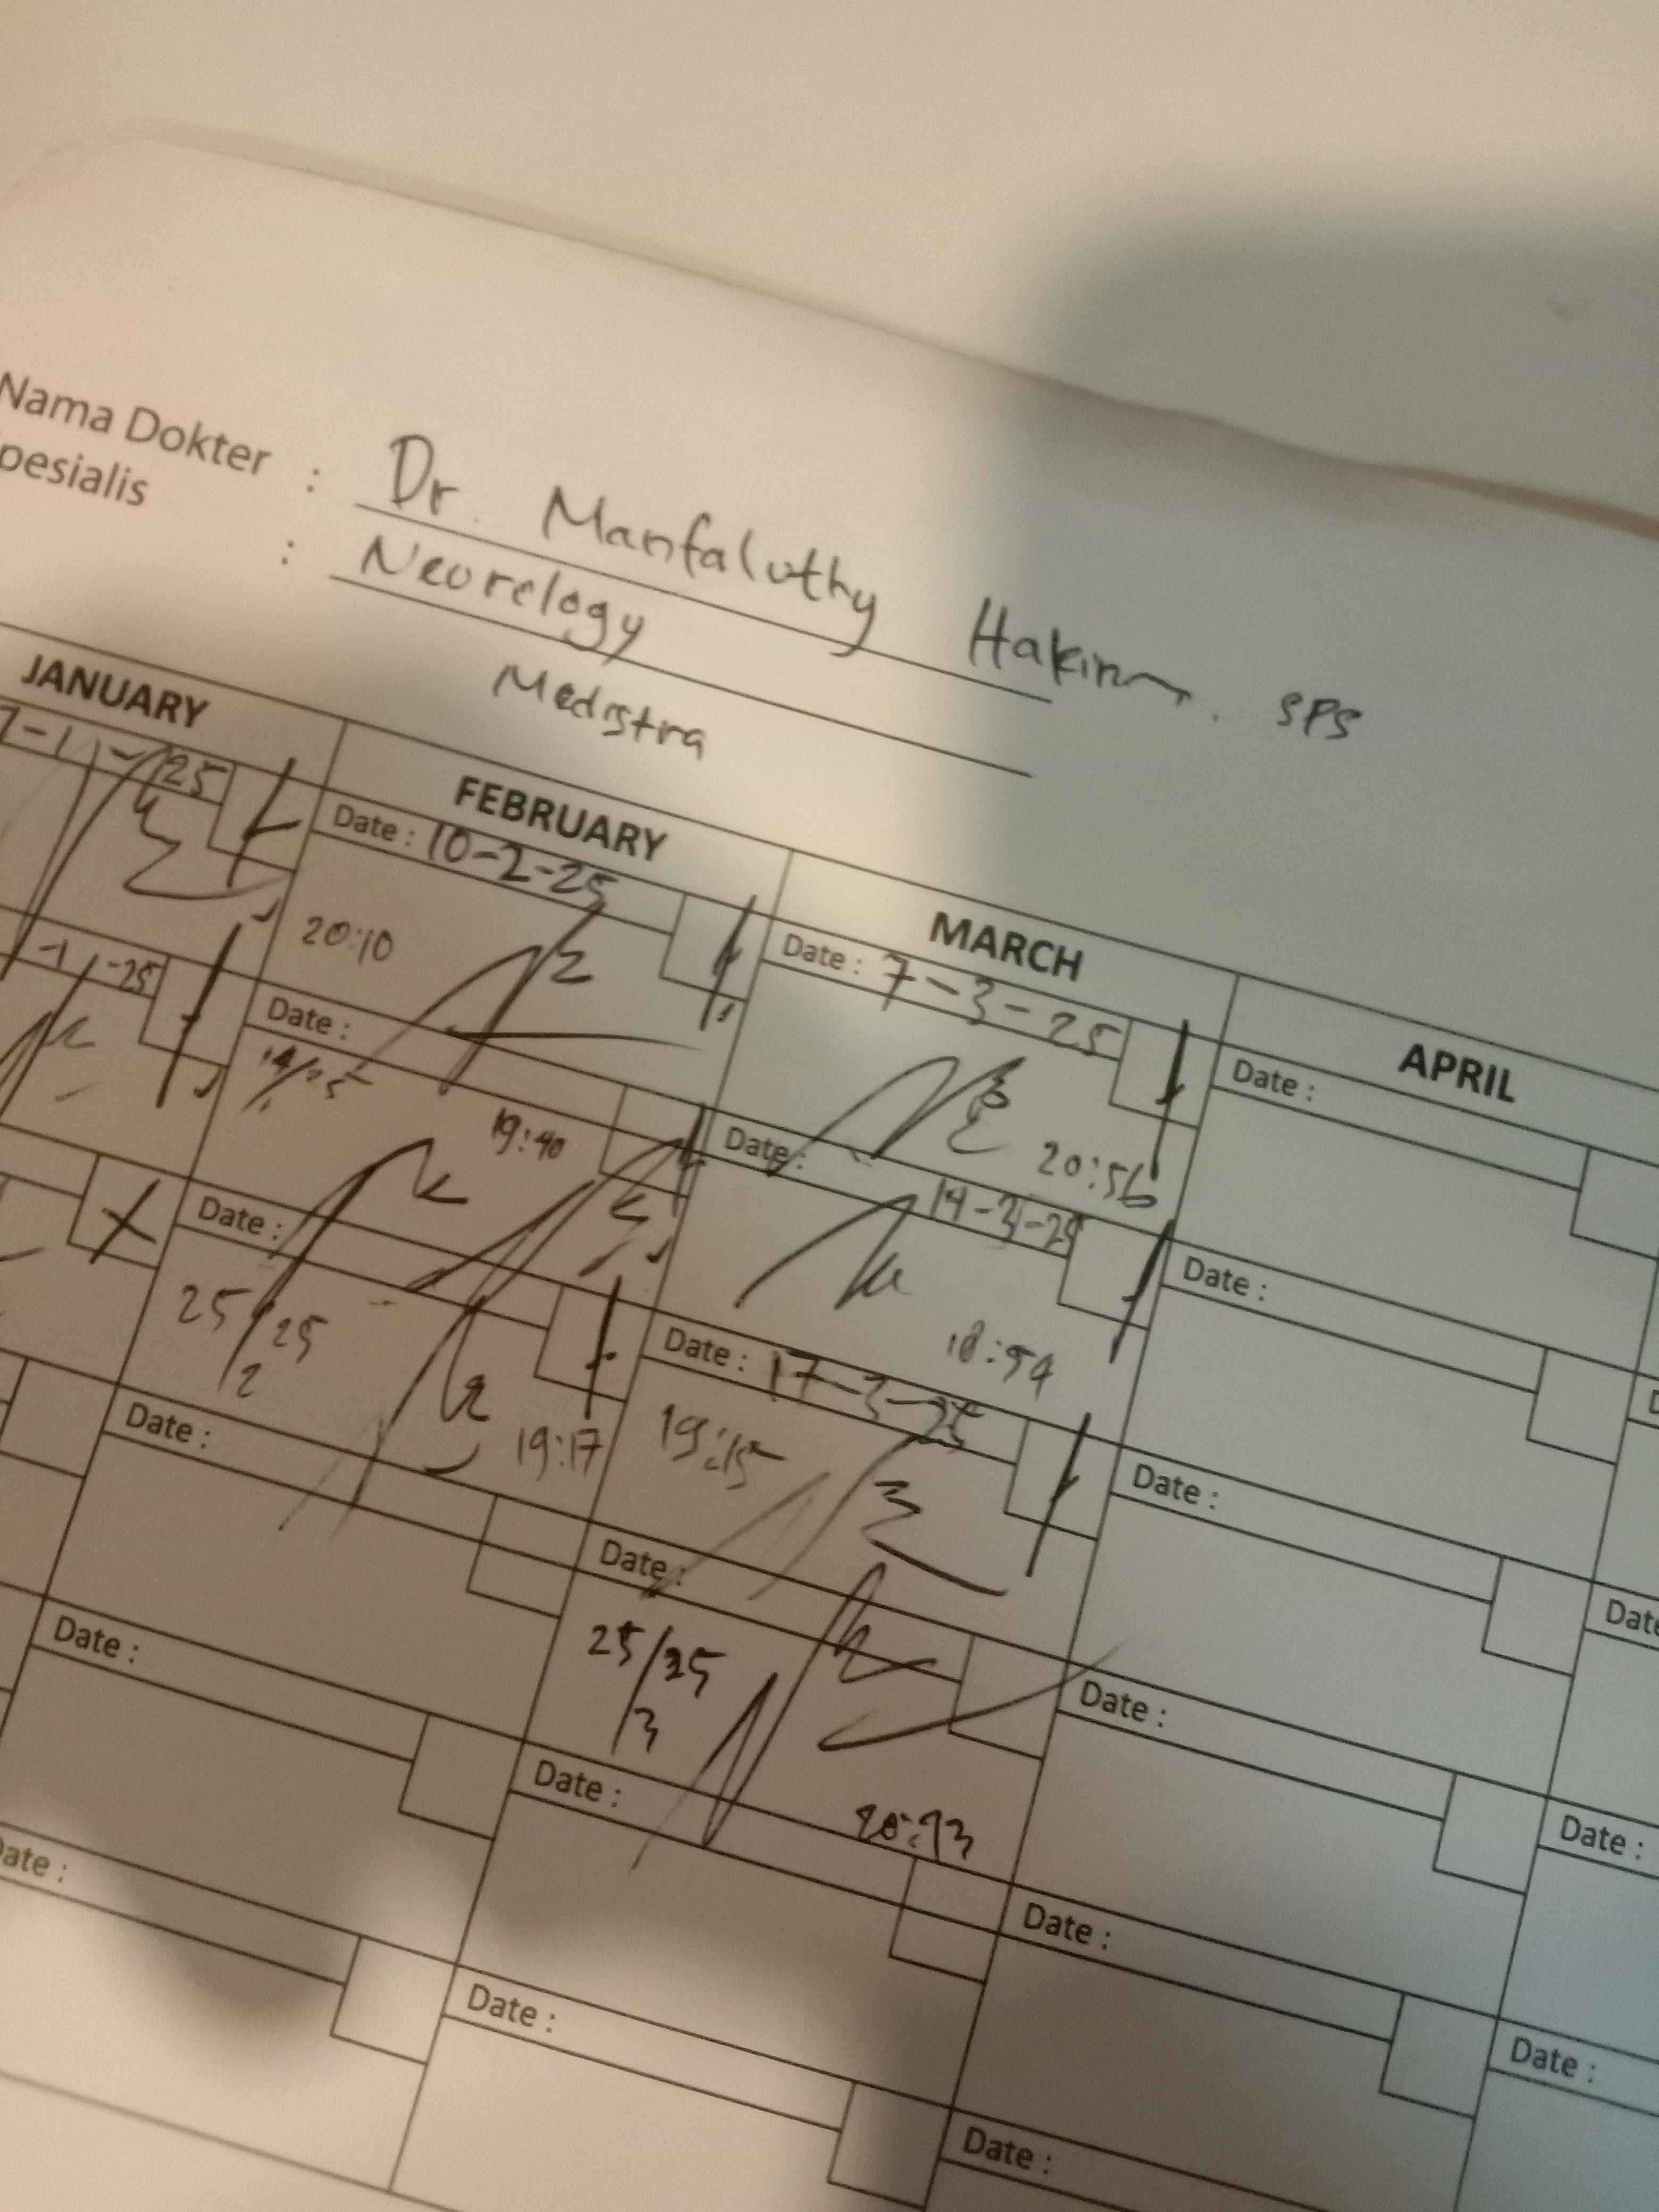 Nama Dokter : Dr. Manfaluthy Hakim. SPS
pesialis : Neorelogy
Medistra
JANUARY FEBRUARY MARCH APRIL
7-1-25
-1-25
Date : 10-2-25
20:10
Date :
19:40
Date :
25/25
2
19:17
Date :
Date :
ate :
Date :
Date : 7-3-25
20:56
Date :
14-3-25
18:54
Date : 17-3-25
19:15
Date :
25/25
3
Date :
Date :
Date :
Date :
Date :
Date :
Date :
Date :
Date :
Date :